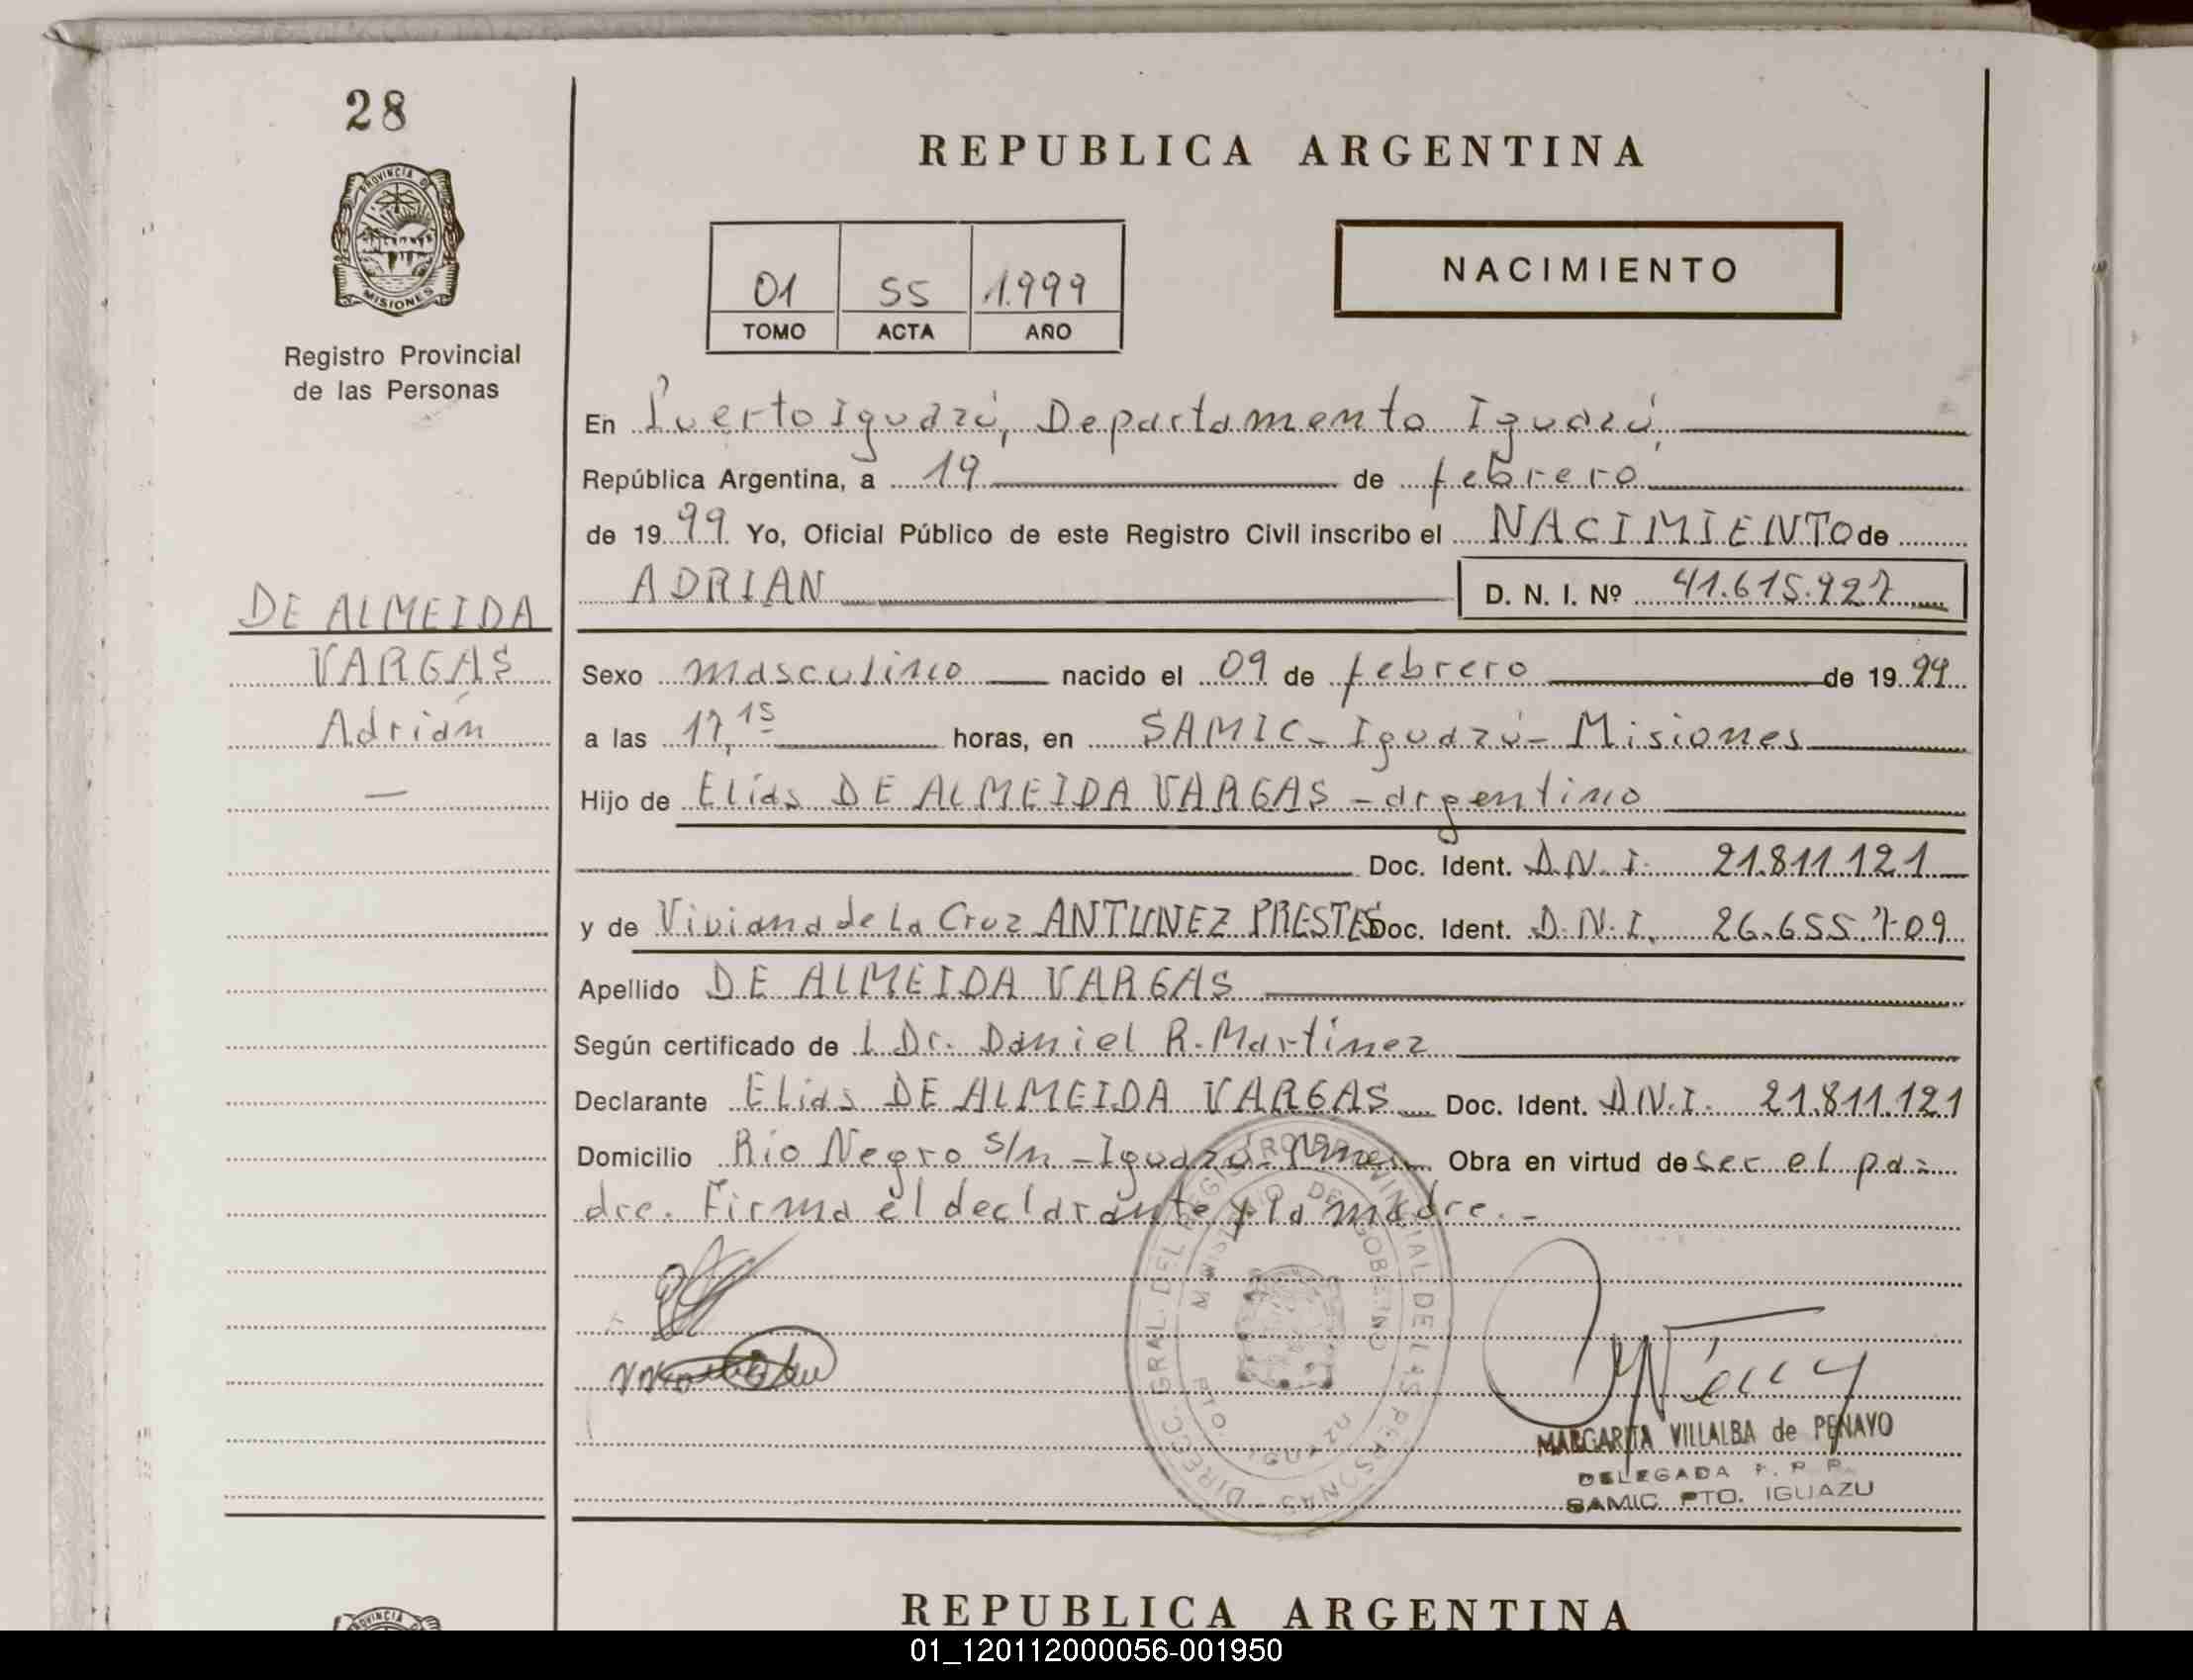 28
PROVINCIA DE
MISIONES
Registro Provincial
de las Personas
DE ALMEIDA
VARGAS
Adrián
—
REPUBLICA ARGENTINA
01 55 1.999
TOMO ACTA AÑO
NACIMIENTO
En Puerto Iguazú, Departamento Iguazú,
República Argentina, a 19 de febrero
de 1999 Yo, Oficial Público de este Registro Civil inscribo el NACIMIENTO de
ADRIAN D. N. I. Nº 41.615.927
Sexo masculino nacido el 09 de febrero de 1999
a las 17,15 horas, en SAMIC - Iguazú - Misiones
Hijo de Elías DE ALMEIDA VARGAS - argentino
Doc. Ident. D.N.I. 21.811.121
y de Viviana de La Cruz ANTUNEZ PRESTES Doc. Ident. D.N.I. 26.655.709
Apellido DE ALMEIDA VARGAS
Según certificado de l Dr. Daniel R. Martínez
Declarante Elías DE ALMEIDA VARGAS Doc. Ident. D.N.I. 21.811.121
Domicilio Río Negro s/n - Iguazú - Obra en virtud de ser el pa=
dre. Firma el declarante y la madre. -
DIRECC. GRAL. DEL REGISTRO PROVINCIAL DE LAS PERSONAS
MINISTERIO DE GOBIERNO
MARGARITA VILLALBA de PENAYO
DELEGADA R. P. P.
SAMIC PTO. IGUAZU
REPUBLICA ARGENTINA
PROVINCIA
01_120112000056-001950